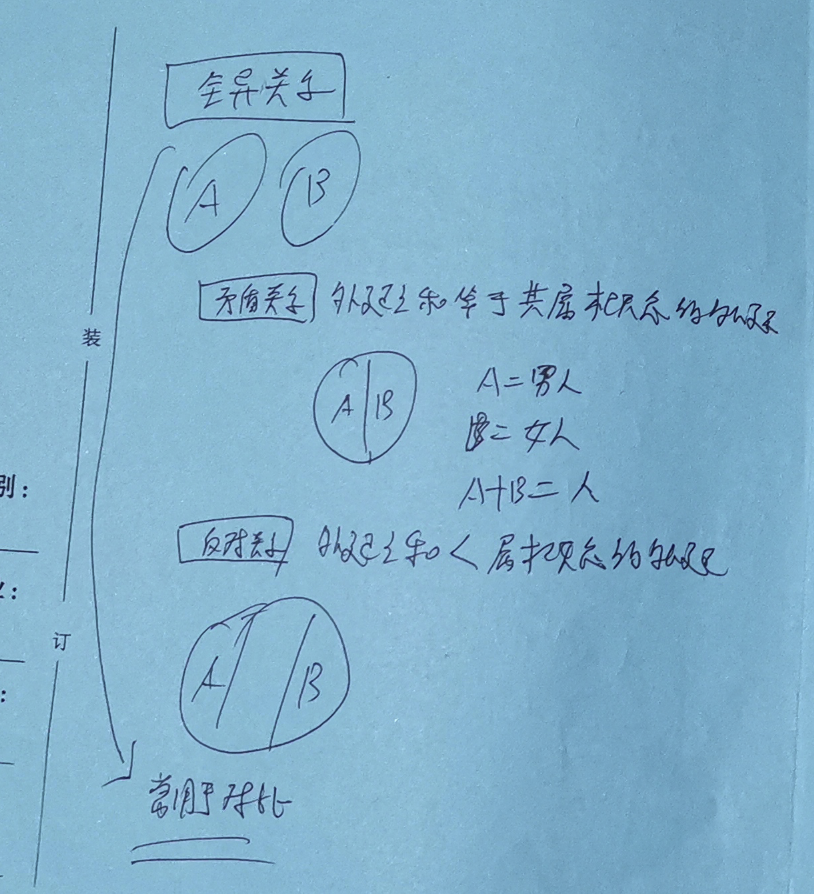 全异关系
A B
矛盾关系 外延之和等于其属概念的外延
装
A B
A=男人
B=女人
A+B=人
别:
反对关系 外延之和<属概念的外延
:
订
:
A B
常用于对比